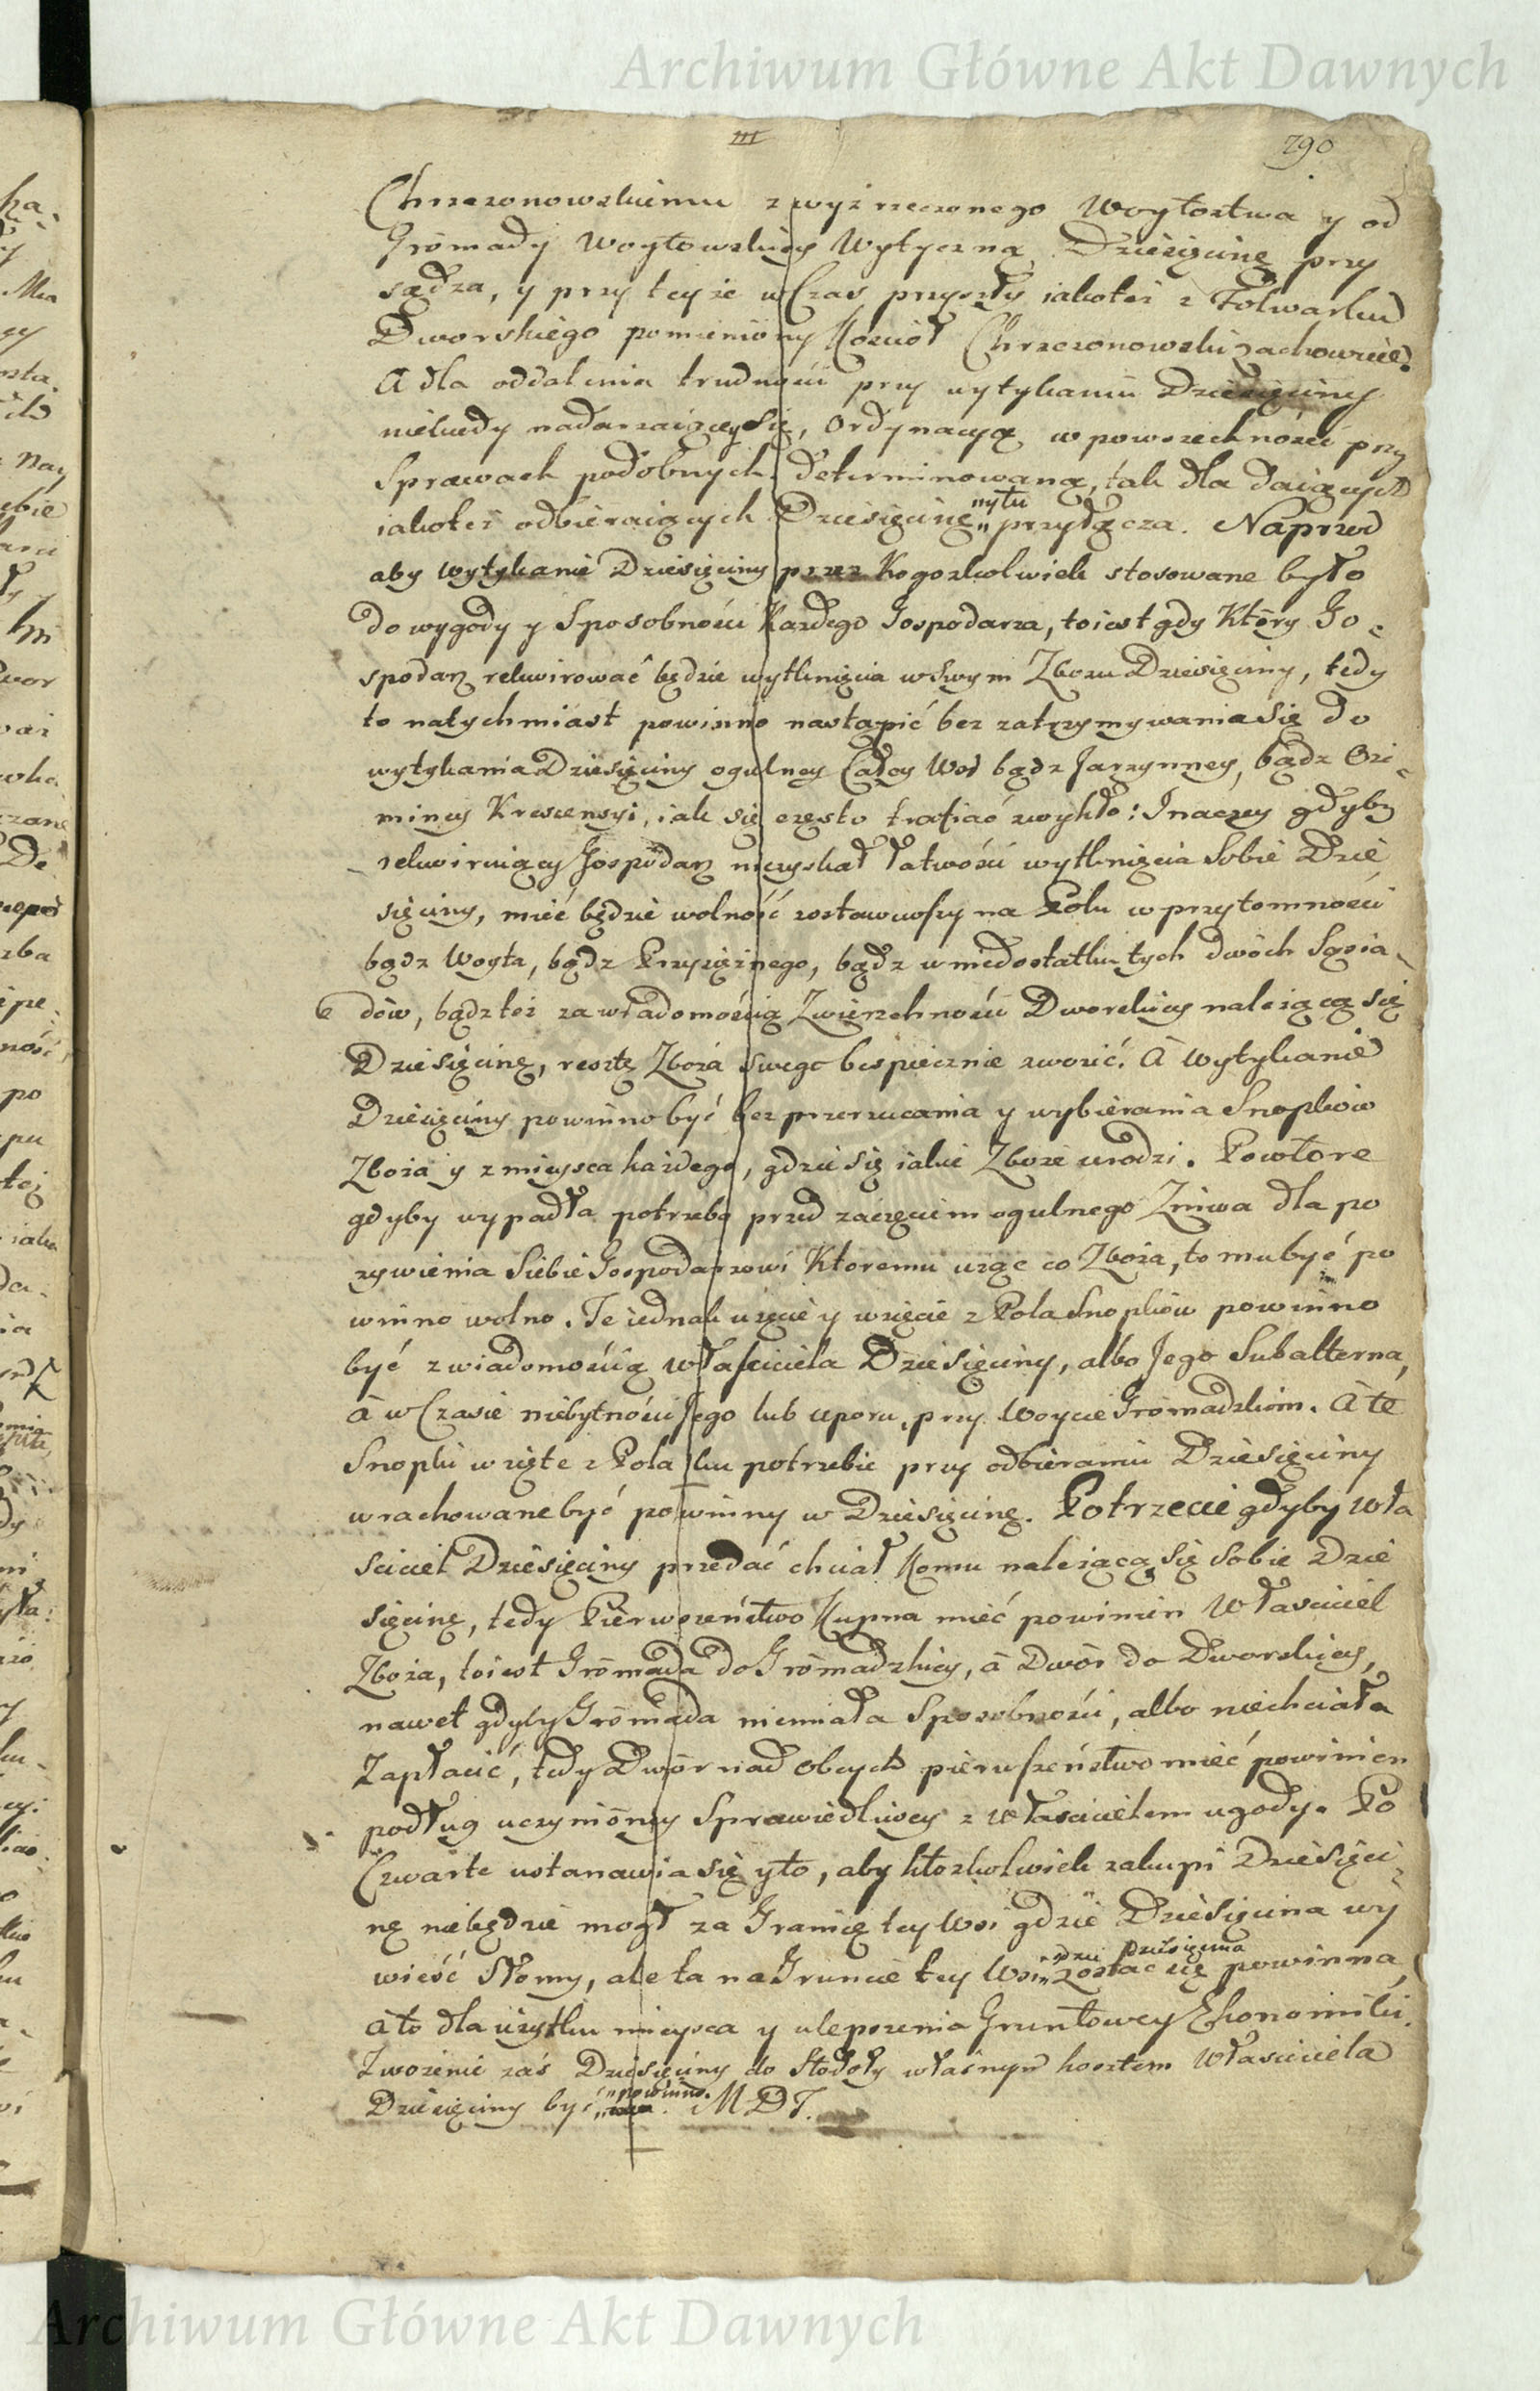 Archiwum Główne Akt Dawnych
III
290
Chrzczonowskiemu z wyż rzeczonego Woytostwa y od
Gromady Woytowskiey Wytyczną Dziesięcinę przy
sądza, y przy teyże w Czas przyszły iakoteż z Folwarku
Dworskiego pomieniony Kościoł Chrzczonowski zachowuie.
A dla oddalenia trudności przy wytykaniu Dziesięciny
niekiedy nadarzaiącey się, Ordynacyą w powszechności przy
Sprawach podobnych determinowaną, tak dla daiących
iakoteż odbieraiących Dziesięcinę „y tu „ przyłącza. Naprzod
aby wytykanie Dziesięciny przez Kogozkolwiek stosowane było
do wygody y Sposobności Każdego Gospodarza, toiest gdy Ktory Go-
spodarz rekwirować będzie wytknięcia w swym Zbożu Dziesięciny, tedy
to natychmiast powinno nastąpić bez zatrzymywania się do
wytykania Dziesięciny ogulney Całey Wsi bądz Jarzynney, bądz Ozi-
miney Krescensyi, iak się często trafiać zwykło: Inaczey gdyby
rekwiruiący Gospodarz niezyskał łatwości wytknięcia Sobie Dzie
sięciny, mieć będzie wolność zostawiwszy na Polu w przytomności
bądz Woyta, bądz Przysiężnego, bądz w niedostatku tych dwoch Sąsia-
dow, bądzteż za wiadomością Zwierzchności Dworskiey należącą się
Dziesięcinę, resztę Zboża swego bespiecznie zwozić. A Wytykanie
Dziesięciny powinno być bez przerzucania y wybierania Snopkow
Zboża y z mieysca każdego, gdzie się iakie Zboże urodzi. Powtore
gdyby wypadła potrzeba przed zaczęciem ogulnego Zniwa dla po
zywienia Siebie Gospodarzowi Ktoremu uząć co Zboża, to mu być po
winno wolno. Te iednak uzęcie y wzięcie z Pola Snopkow powinno
być z wiadomością właściciela Dziesięciny, albo Jego Subalterna,
A w Czasie niebytności Jego lub uporu, przy Woycie Gromadzkim. A te
Snopki wzięte z Pola ku potrzebie przy odbieraniu Dziesięciny
wrachowane być powinny w Dziesięcinę. Potrzecie gdyby wła
sciciel Dziesięciny przedać chciał Komu należącą się Sobie Dzie
sięcinę, tedy Pierwszeństwo Kupna mieć powinien Własciciel
Zboża, toiest Gromada do Gromadzkiey, á Dwor do Dworskiey,
nawet gdyby Gromada niemiała Sposobności, albo niechciała
Zapłacić, tedy Dwor nad Obcych pierwszeństwo mieć powinien
podług uczynioney Sprawiedliwey z włascicielem ugody. Po
Czwarte ustanawia się y to, aby ktozkolwiek zakupi Dziesięci-
nę niebędzie mogł za Granicę tey Wsi gdzie Dziesięcina wy
wieść Słomy, ale ta na Gruncie tey Wsi „gdzie Dziesięcina „ zostać się powinna,
A to dla użytku mieysca y ulepszenia Gruntowey Ekonomiki.
Zwożenie zaś Dziesięciny do Stodoły własnym kosztem Własciciela
Dziesięciny być „powinno. MDT.
Archiwum Główne Akt Dawnych